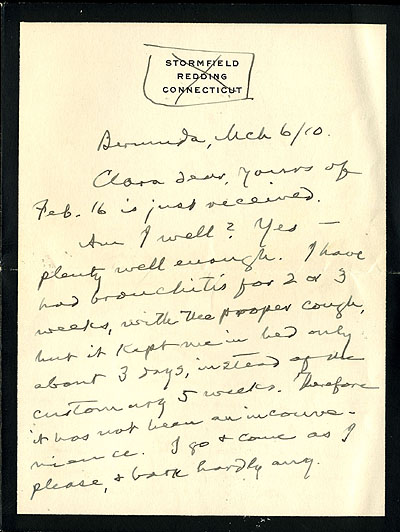 STORMFIELD
REDDING
CONNECTICUT
Bermuda, Mch 6/10.
Clara dear, Yours of
Feb. 16 is just received.
Am I well? Yes —
plenty well enough. I have
had bronchitis for 2 or 3
weeks, with the proper cough,
but it kept me in bed only
about 3 days, instead of the
customary 5 weeks. Therefore
it has not been an inconve-
nience. I go & come as I
please, & bark hardly any.